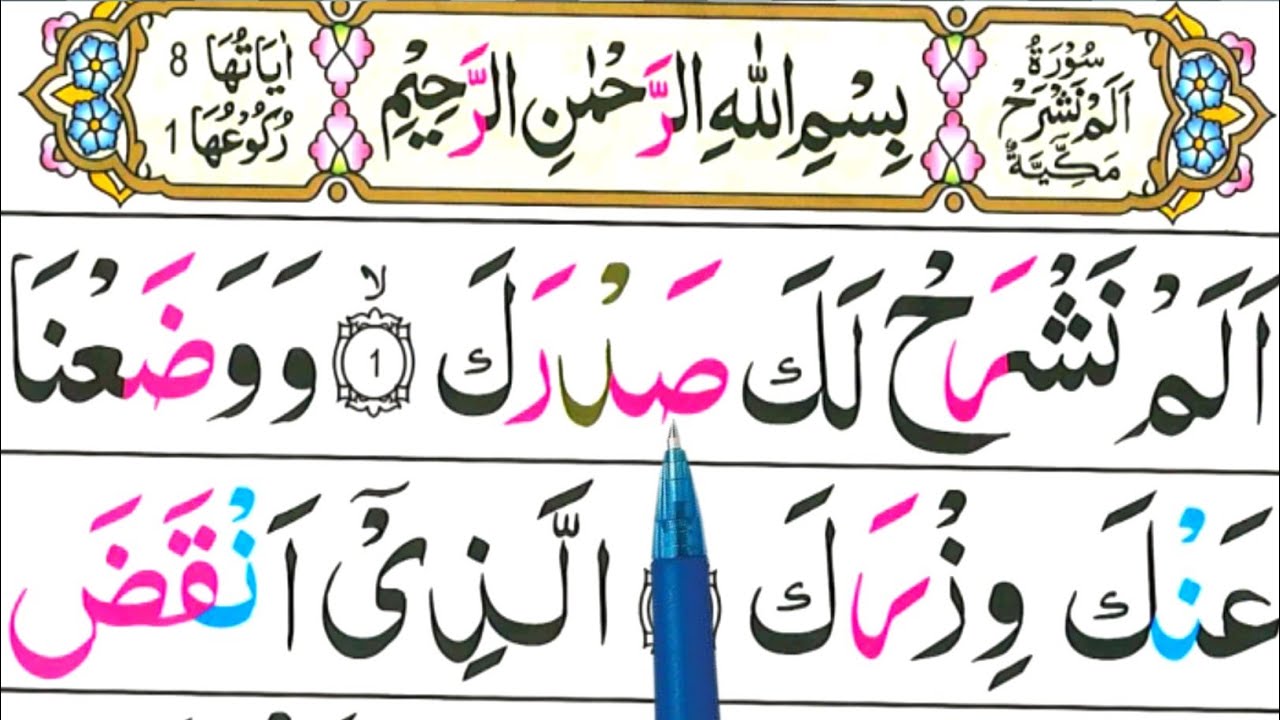 سُوْرَةُ
اَلَمْ نَشْرَحْ
مَكِّيَّةٌ
بِسْمِ اللّٰهِ الرَّحْمٰنِ الرَّحِيْمِ
اٰيَاتُهَا 8
رُكُوْعُهَا 1
اَلَمْ نَشْرَحْ لَكَ صَدْرَكَ ۙ 1 وَوَضَعْنَا
عَنْكَ وِزْرَكَ الَّذِىْٓ اَنْقَضَ